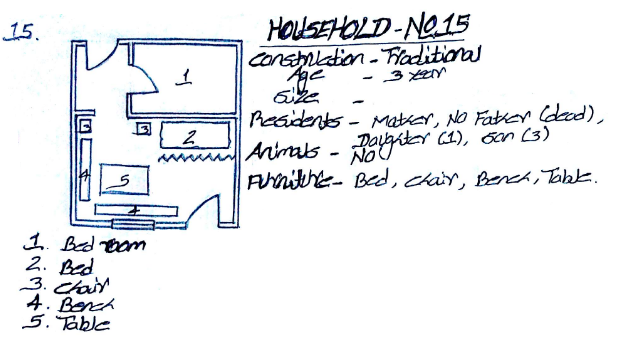 15.
HOUSEHOLD - NO.15
Construction - Traditional
Age - 3 year
Size -
Residents - Mother, No Father (dead),
Daughter (1), Son (3)
Animals - NO
Furniture - Bed, chair, Bench, Table.
1
3
3
2
4
5
4
1. Bed room
2. Bed
3. chair
4. Bench
5. Table